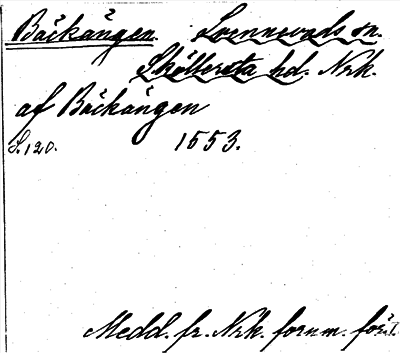 Bäckängen. Lännevads sn.
Sköllersta hd. Nrk.
af Bäckängen
S. 120. 1553.
Medd. fr. Nrk. fornm. för.